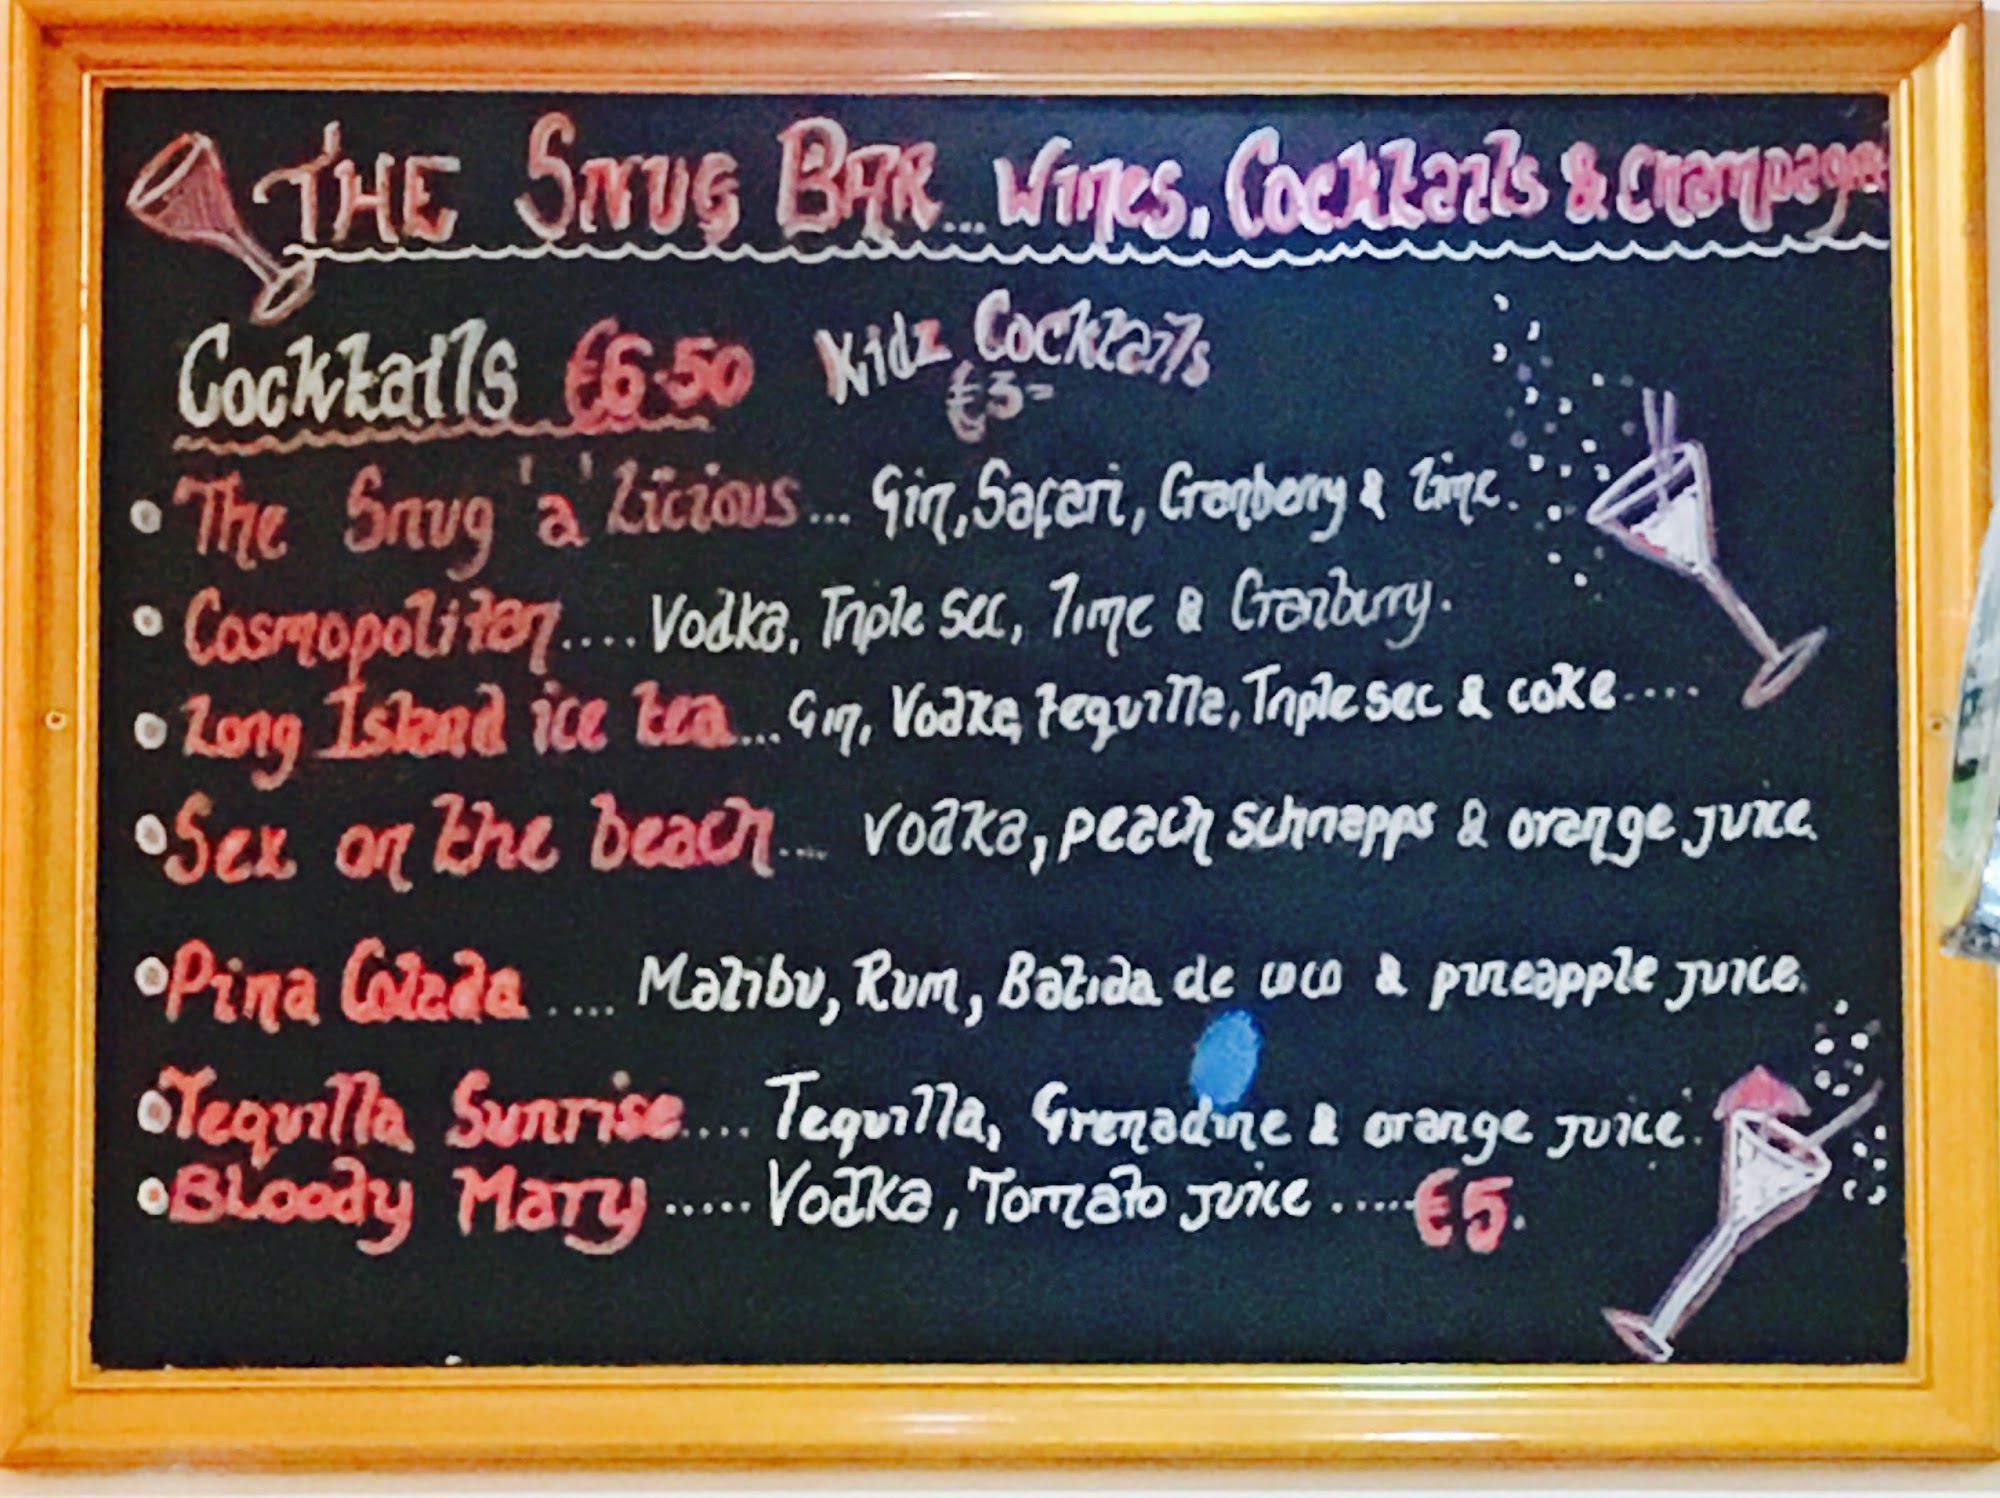 THE SNUG BAR... Wines, Cocktails & Champagne
Cocktails €6.50 Kidz Cocktails
€3-
The Snug 'a' Licious... Gin, Safari, Cranberry & Lime.
Cosmopolitan.... Vodka, Triple sec, Lime & Cranburry.
Long Island ice tea... Gin, Vodka, tequilla, Triple sec & coke....
Sex on the beach.... Vodka, peach schnapps & orange juice.
Pina Colada .... Malibu, Rum, Batida de coco & pineapple juice.
Tequilla Sunrise.... Tequilla, Grenadine & orange juice.
Bloody Mary ..... Vodka, Tomato juice .....€5.